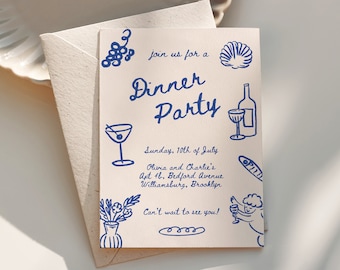 join us for a
Dinner
Party
Sunday, 10th of July
Olivia and Charlie's
Apt 16, Bedford Avenue
Williamsburg, Brooklyn
Can't wait to see you!